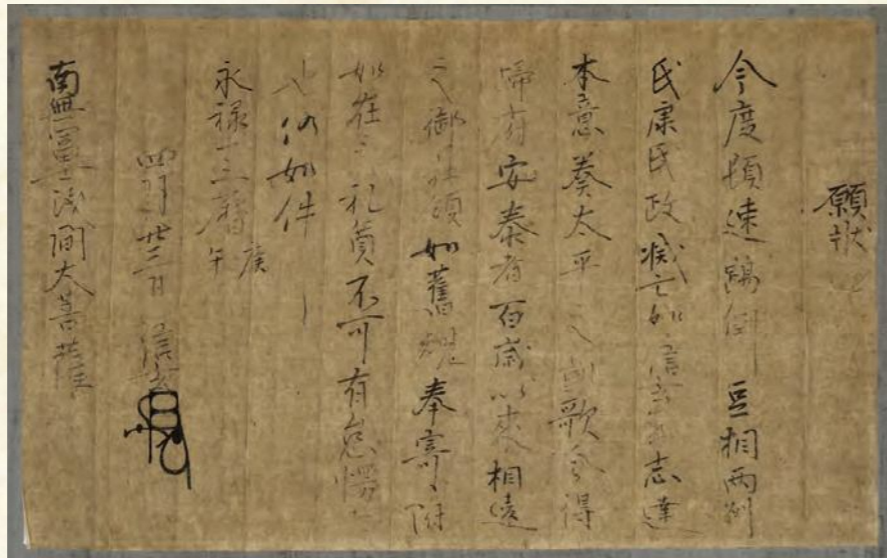 願状
今度頓速蹈倒豆相両州
氏康氏政滅亡如信玄志達
本意奏太平之凱歌令得
帰府安泰者百歳以来相違
之御社領如旧規奉寄附
如在之礼奠不可有怠慢
也仍如件
永禄十三暦庚午
四月廿三日 信玄
南無富士浅間大菩薩